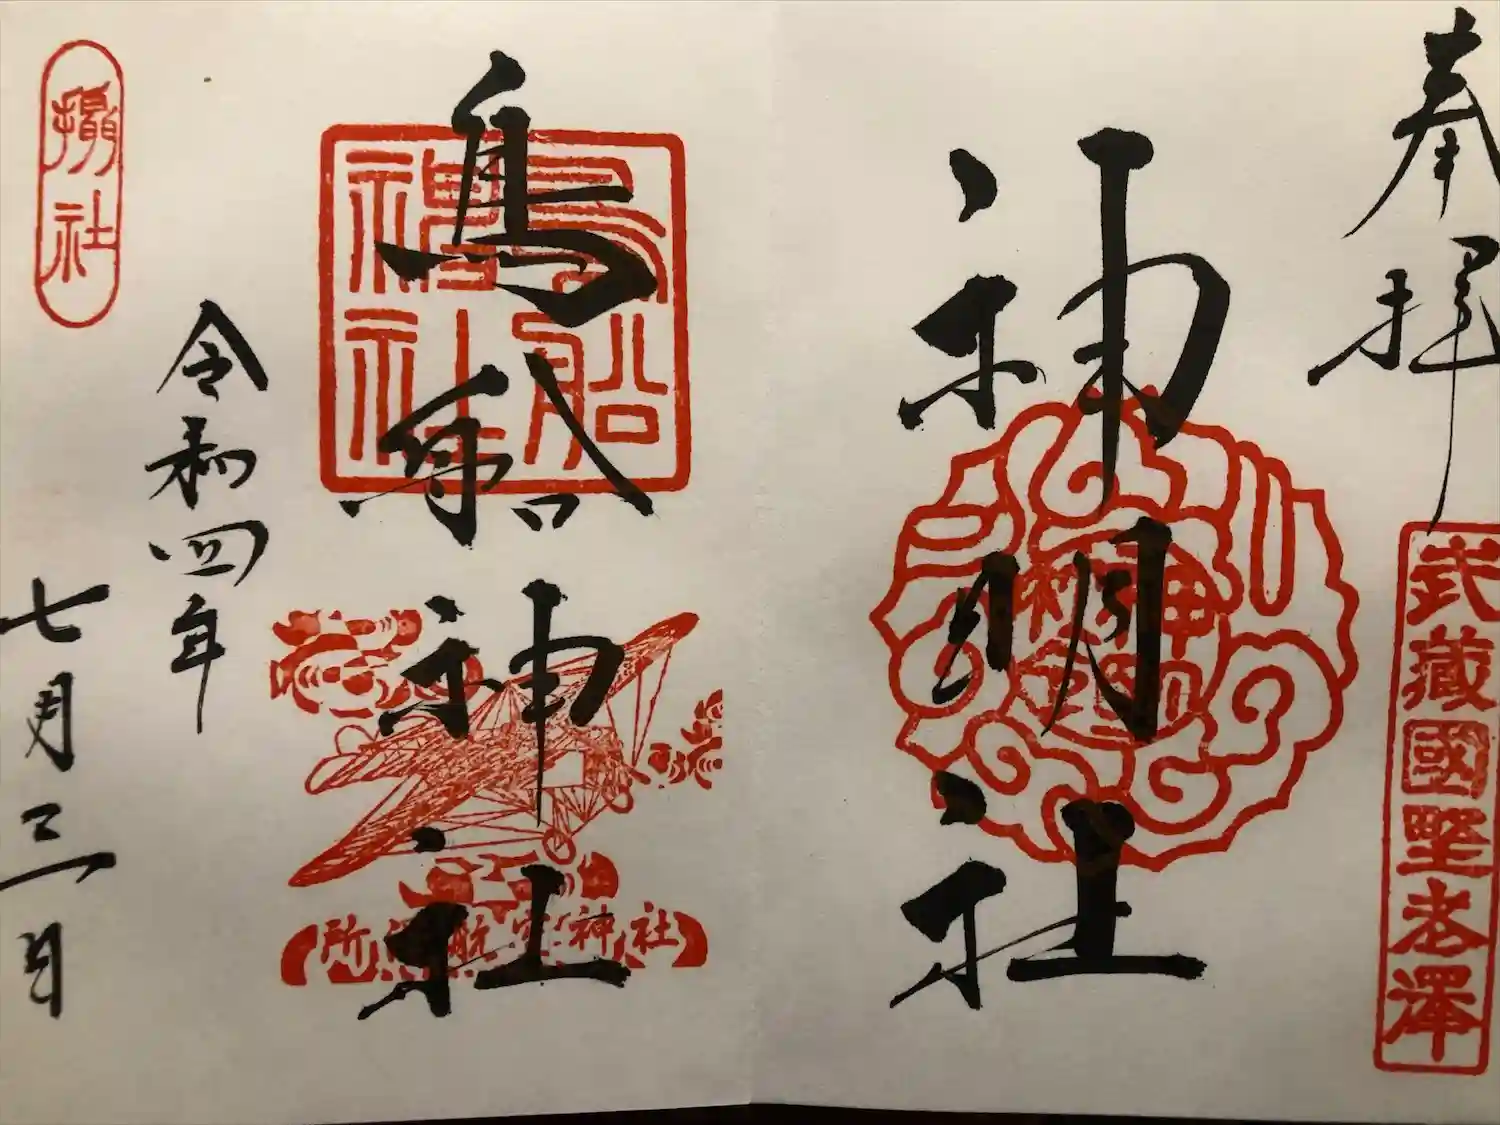 奉拝
武藏國野老澤
神明社
鳥船神社
鳥船神社
所澤航空神社
令和四年
七月三日
攝社